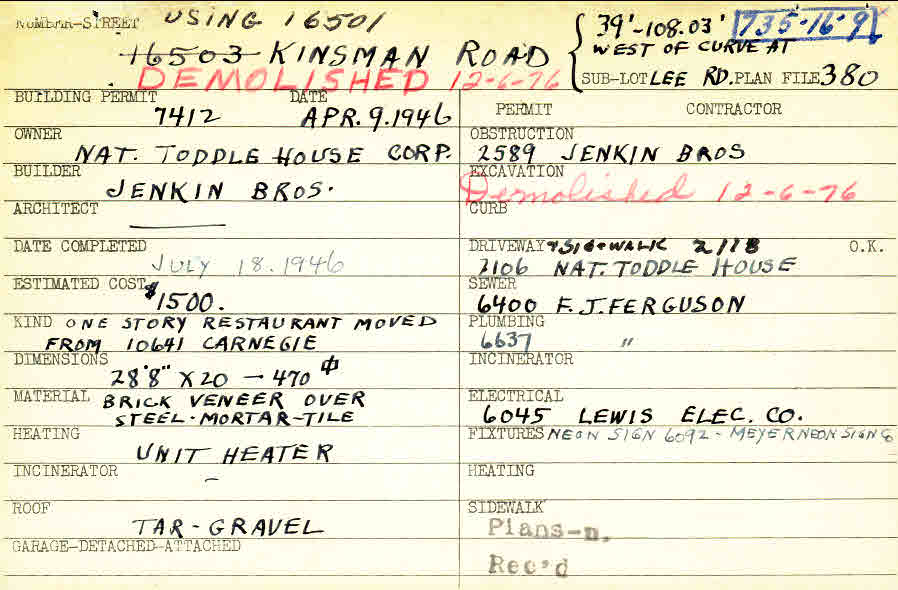 NUMBER-STREET USING 16501
16503 KINSMAN ROAD
DEMOLISHED 12-6-76
39'-108.03' 735-16-9
WEST OF CURVE AT
SUB-LOT LEE RD. PLAN FILE 380
BUILDING PERMIT DATE
7412 APR. 9. 1946
OWNER
NAT. TODDLE HOUSE CORP.
BUILDER
JENKIN BROS.
ARCHITECT
DATE COMPLETED
JULY 18. 1946
ESTIMATED COST
$1500.
KIND ONE STORY RESTAURANT MOVED
FROM 10641 CARNEGIE
DIMENSIONS
28'8" X 20 - 470
MATERIAL BRICK VENEER OVER
STEEL-MORTAR-TILE
HEATING
UNIT HEATER
INCINERATOR
-
ROOF
TAR-GRAVEL
GARAGE-DETACHED-ATTACHED
PERMIT CONTRACTOR
OBSTRUCTION
2589 JENKIN BROS
EXCAVATION
Demolished 12-6-76
CURB
DRIVEWAY & SIDEWALK 2118 O.K.
2106 NAT. TODDLE HOUSE
SEWER
6400 F.J. FERGUSON
PLUMBING
6637 "
INCINERATOR
ELECTRICAL
6045 LEWIS ELEC. CO.
FIXTURES NEON SIGN 6092 - MEYER NEON SIGN CO
HEATING
SIDEWALK
Plans-n.
Rec'd